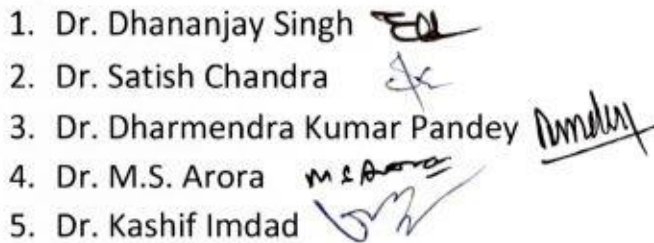 1. Dr. Dhananjay Singh
2. Dr. Satish Chandra
3. Dr. Dharmendra Kumar Pandey
4. Dr. M.S. Arora M S Arora
5. Dr. Kashif Imdad